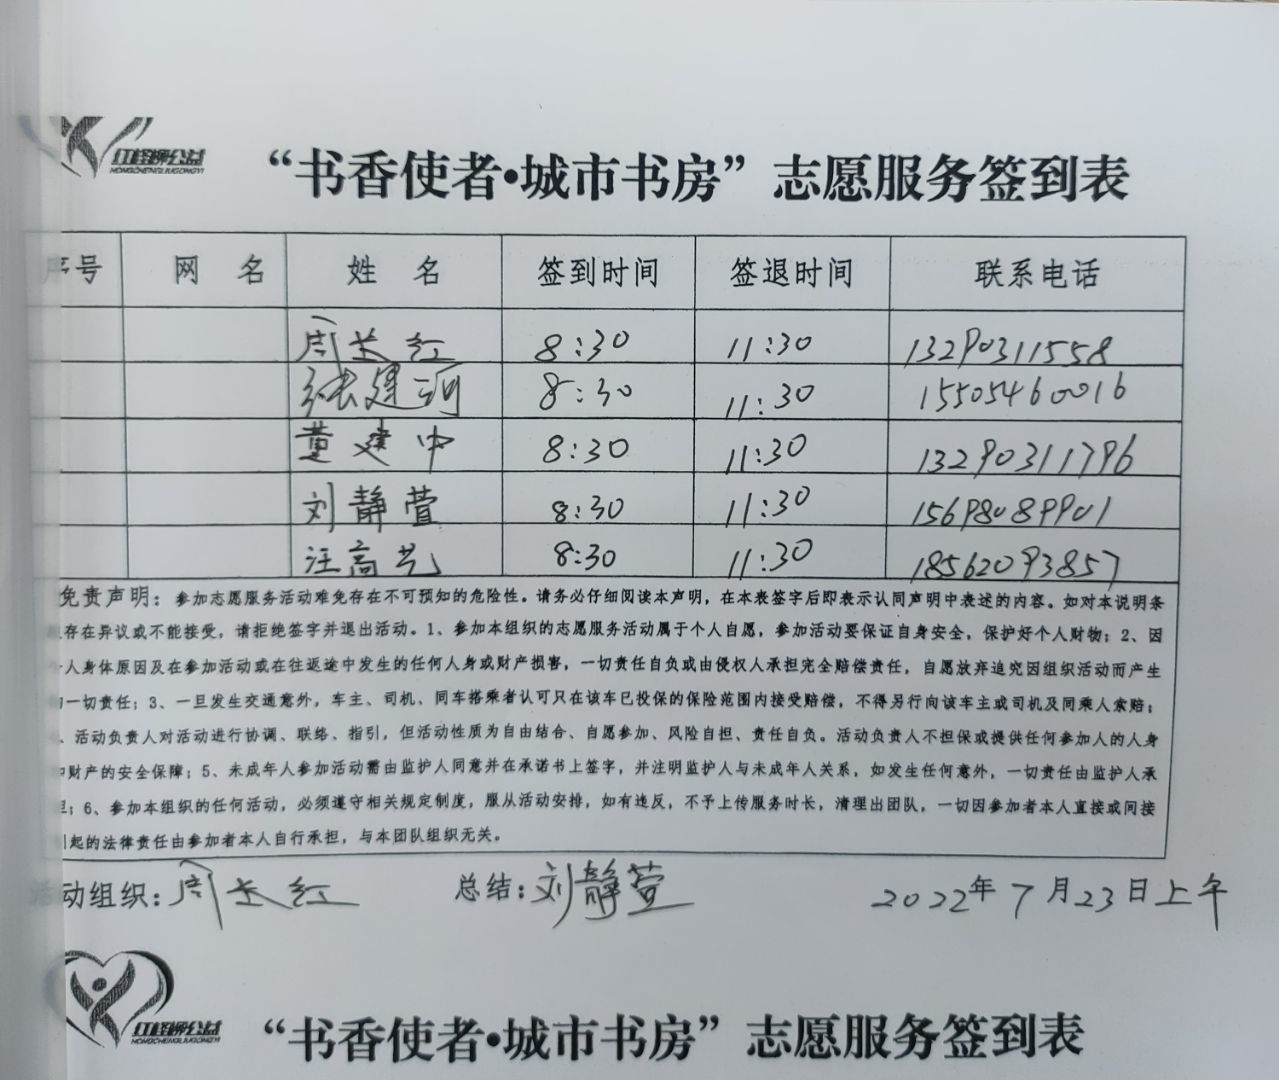 红柽柳公益
HONGCHENGLIUGONGYI
“书香使者•城市书房”志愿服务签到表
序号 网 名 姓 名 签到时间 签退时间 联系电话
周长红 8:30 11:30 13290311558
张建河 8:30 11:30 15505460016
董建中 8:30 11:30 13290311796
刘静萱 8:30 11:30 15698089901
汪高艺 8:30 11:30 18562093857
免责声明：参加志愿服务活动难免存在不可预知的危险性。请务必仔细阅读本声明，在本表签字后即表示认同声明中表述的内容。如对本说明条
存在异议或不能接受，请拒绝签字并退出活动。1、参加本组织的志愿服务活动属于个人自愿，参加活动要保证自身安全，保护好个人财物；2、因
个人身体原因及在参加活动或在往返途中发生的任何人身或财产损害，一切责任自负或由侵权人承担完全赔偿责任，自愿放弃追究因组织活动而产生
的一切责任；3、一旦发生交通意外，车主、司机、同车搭乘者认可只在该车已投保的保险范围内接受赔偿，不得另行向该车主或司机及同乘人索赔；
、活动负责人对活动进行协调、联络、指引，但活动性质为自由结合、自愿参加、风险自担、责任自负。活动负责人不担保或提供任何参加人的人身
和财产的安全保障；5、未成年人参加活动需由监护人同意并在承诺书上签字，并注明监护人与未成年人关系，如发生任何意外，一切责任由监护人承
担；6、参加本组织的任何活动，必须遵守相关规定制度，服从活动安排，如有违反，不予上传服务时长，清理出团队，一切因参加者本人直接或间接
引起的法律责任由参加者本人自行承担，与本团队组织无关。
活动组织：周长红 总结：刘静萱 2022年7月23日上午
红柽柳公益
HONGCHENGLIUGONGYI
“书香使者•城市书房”志愿服务签到表